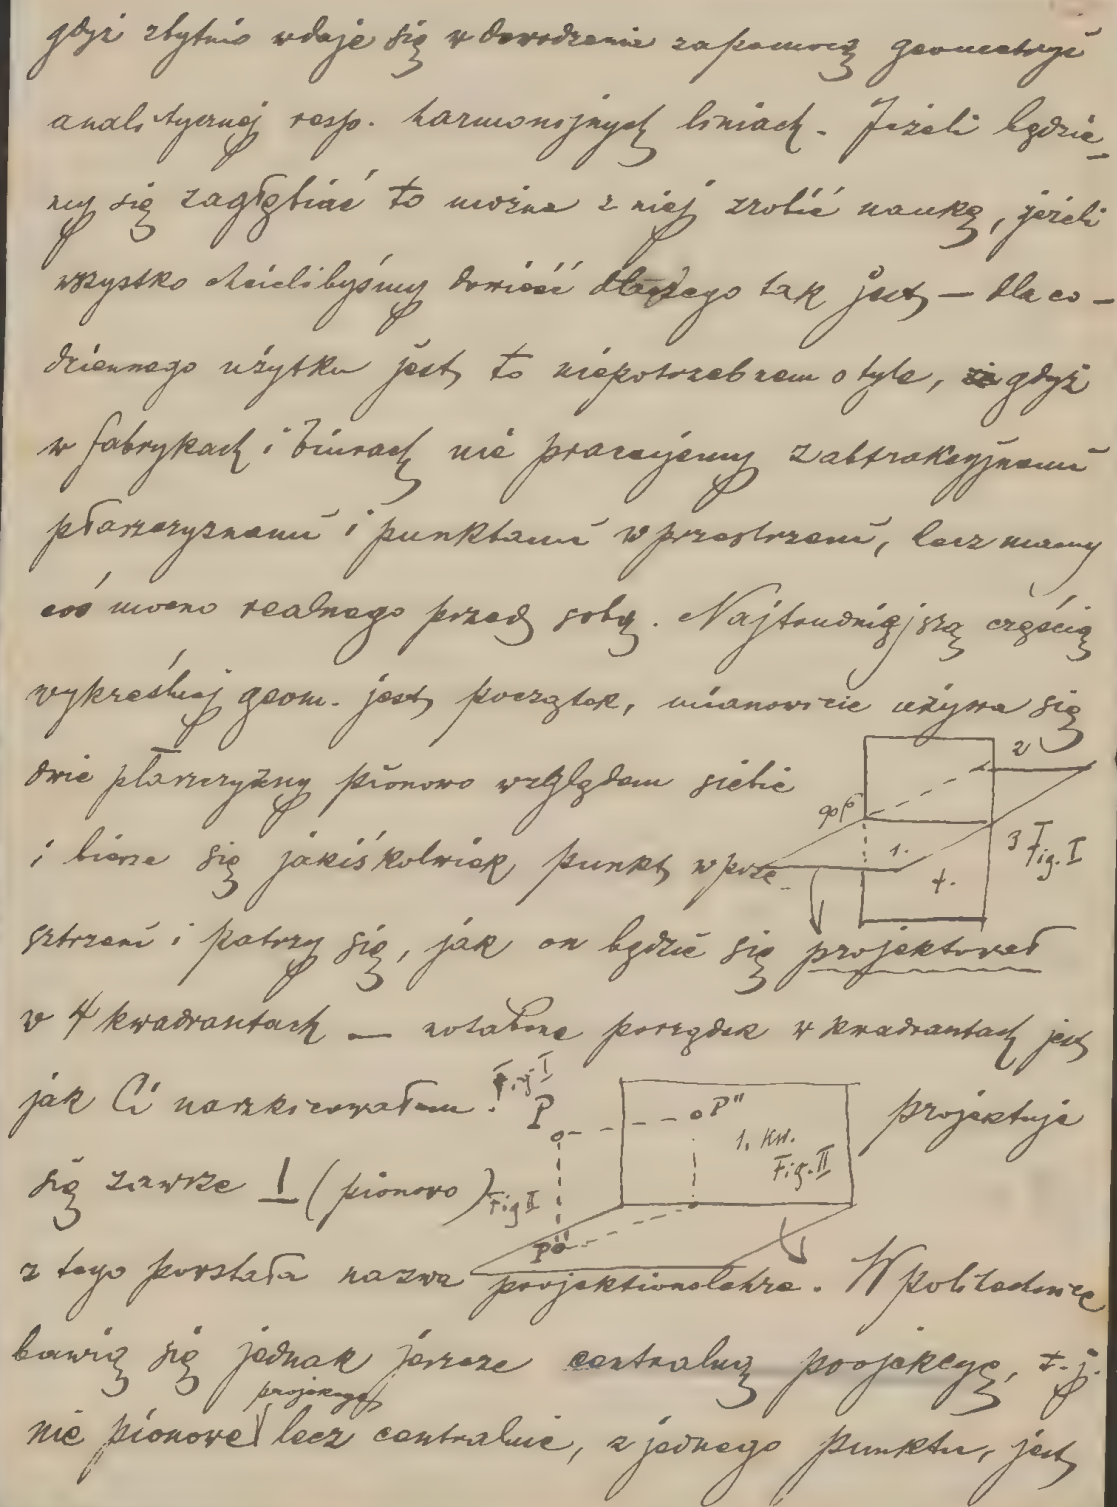 gdyż zbytnio wdaje się w dowodzenie zapomocą geometryi
analitycznej resp. harmonijnych liniach. Jeżeli będzie-
my się zagłębiać to można z niej zrobić naukę, jeżeli
wszystko chcielibyśmy dowieść dlaczego tak jest — dla co-
dziennego użytku jest to niepotrzebnem o tyle, gdyż
w fabrykach i biurach nie pracujemy z abstrakcyjnemi
płaszczyznami i punktami w przestrzeni, lecz mamy
coś mocno realnego przed sobą. Najtrudniejszą częścią
wykreślnej geom. jest początek, mianowicie używa się
dwie płaszczyzny pionowo względem siebie
2
90°
1.
3
4.
Fig. I
i bierze się jakiśkolwiek punkt w prze-
sztrzeni i patrzy się, jak on będzie się projektował
w 4 kwadrantach — notabene porządek w kwadrantach jest
jak Ci naszkicowałem! Fig I
projektuje
P
P"
1. Kw.
Fig. II
się zawsze ⊥ (pionowo) Fig II
P'
z tego powstała nazwa projektionslehre. W politechnice
bawią się jednak jeszcze centralną projekcyę, t. j.
projekcye
nie pionowe lecz centralnie, z jednego punktu, jest